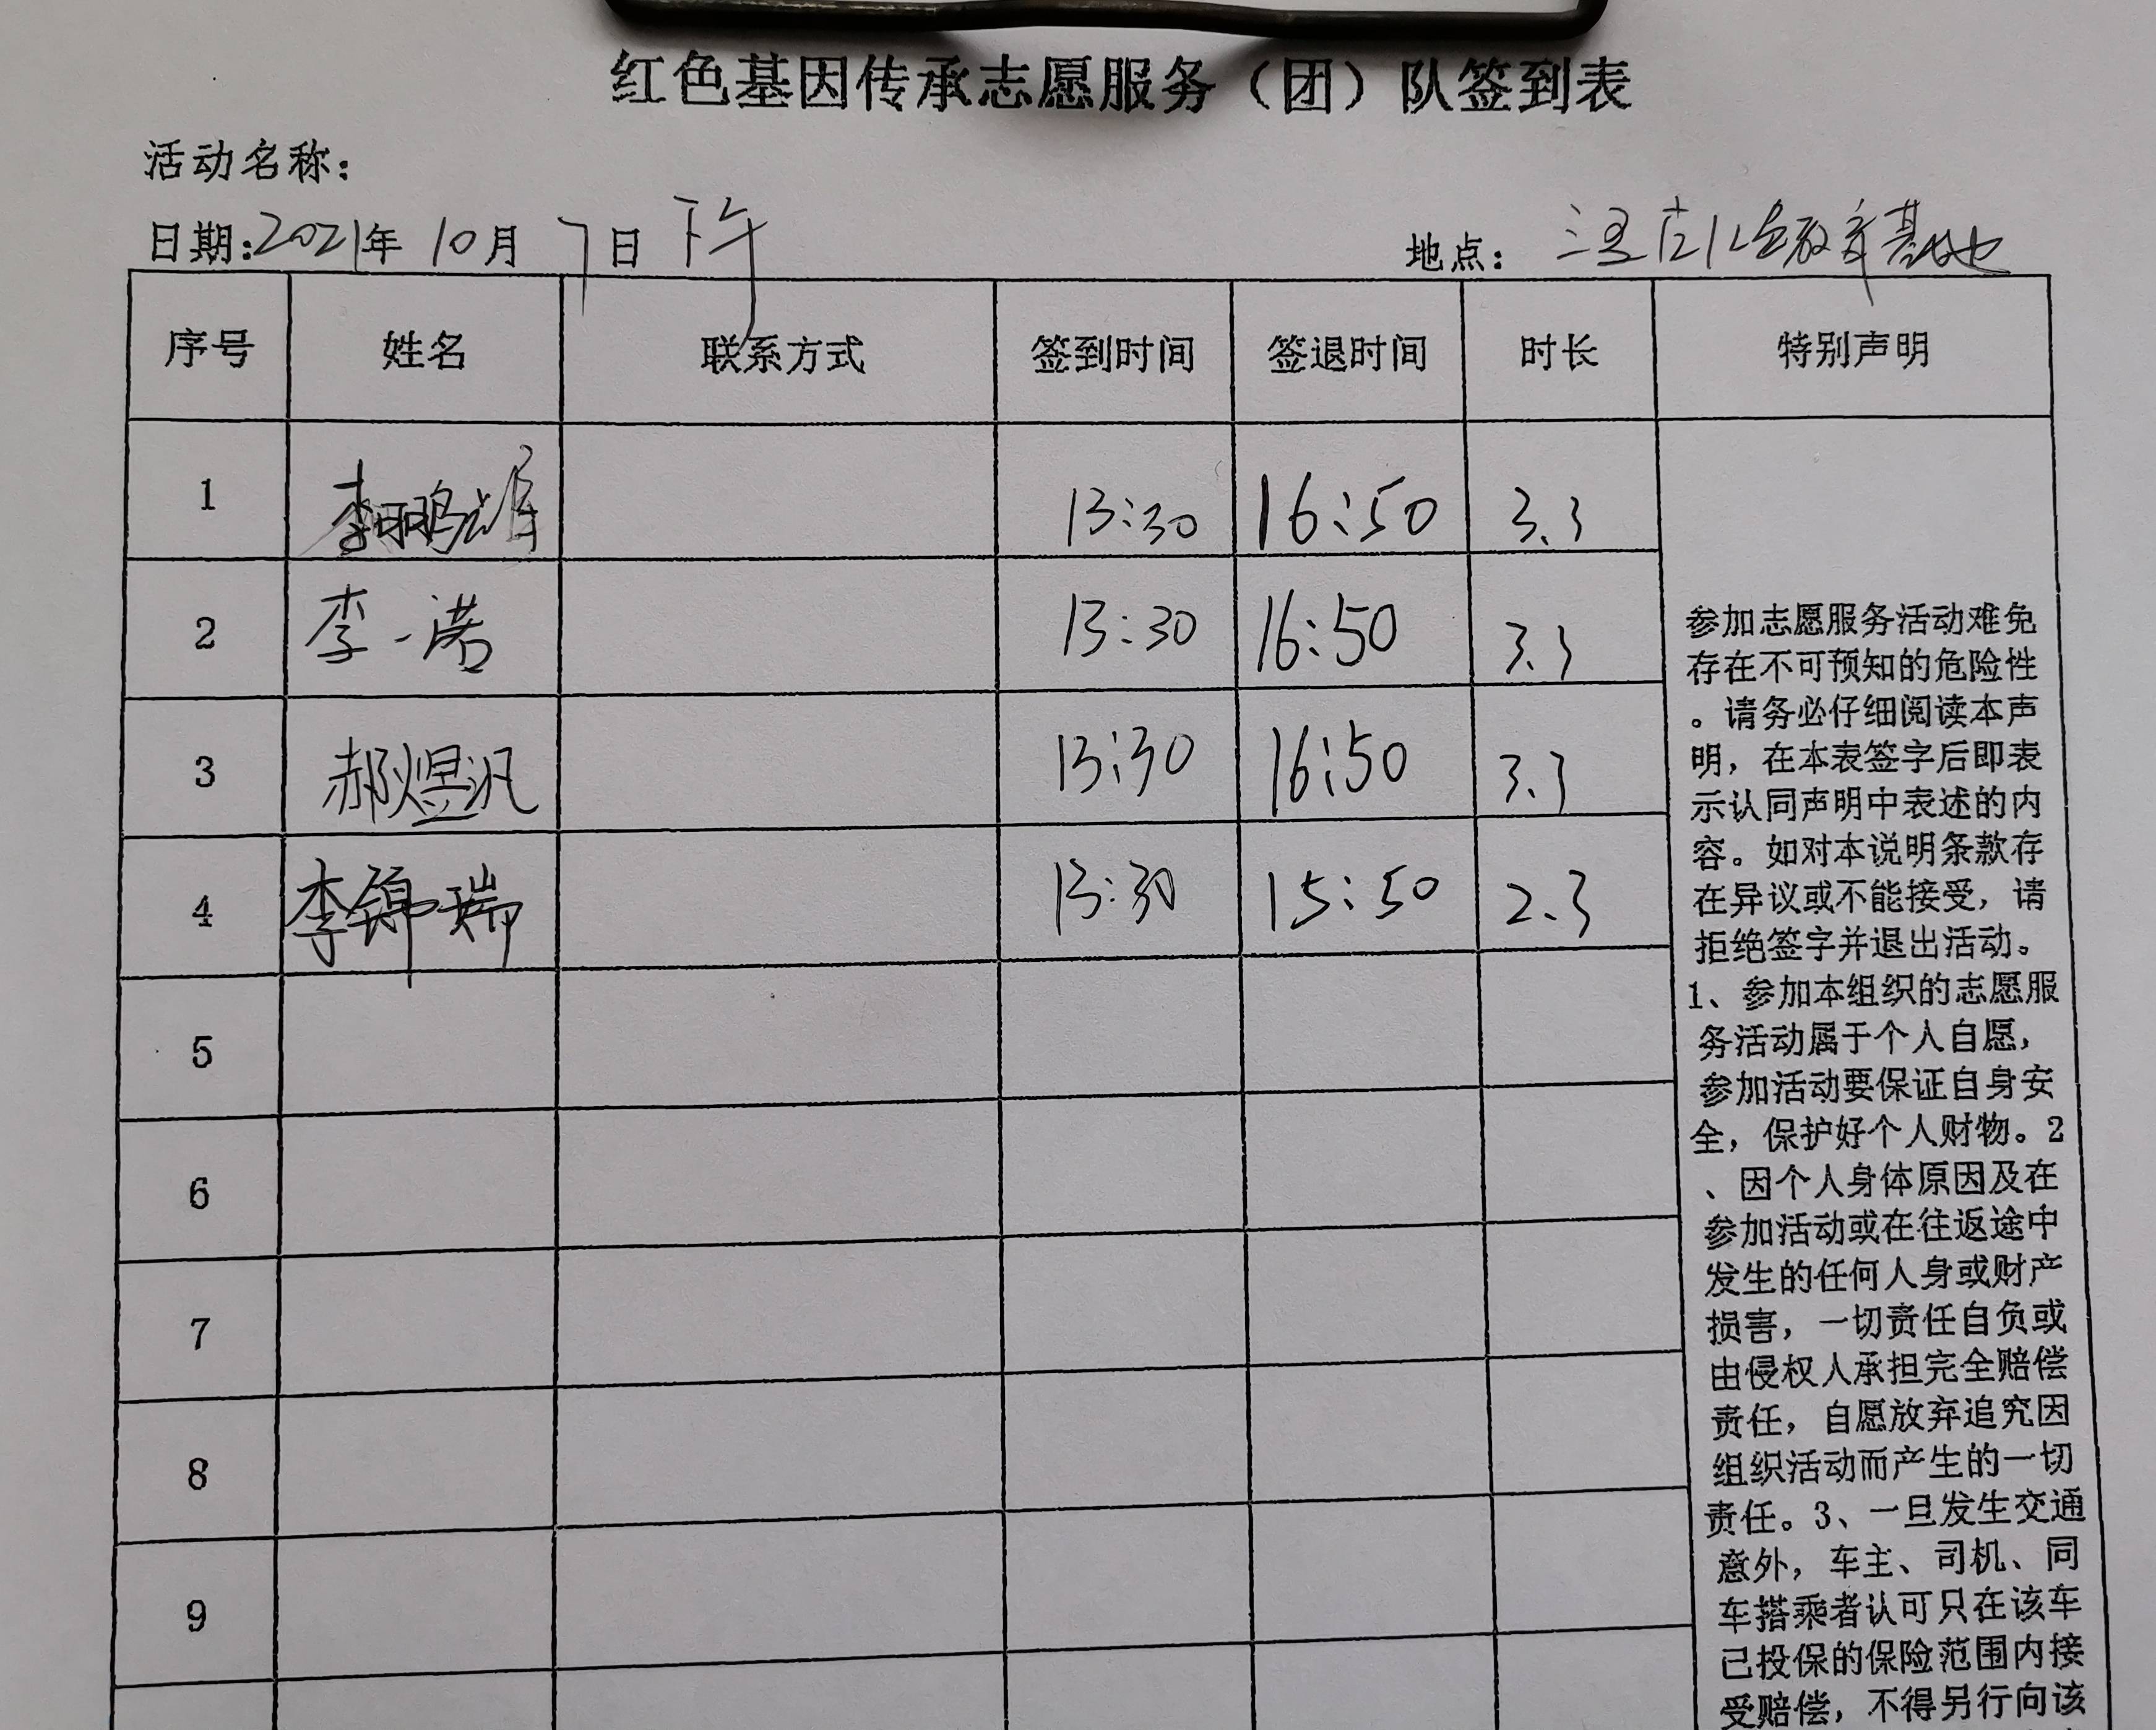 红色基因传承志愿服务（团）队签到表
活动名称：
日期:2021年 10月 7日 下午
地点： 教育基地
序号 姓名 联系方式 签到时间 签退时间 时长 特别声明
1 李鹏 13:30 16:50 3.3
2 李一诺 13:30 16:50 3.3
3 郝煜汎 13:30 16:50 3.3
4 李锦瑞 13:30 15:50 2.3
5
6
7
8
9
参加志愿服务活动难免
存在不可预知的危险性
。请务必仔细阅读本声
明，在本表签字后即表
示认同声明中表述的内
容。如对本说明条款存
在异议或不能接受，请
拒绝签字并退出活动。
1、参加本组织的志愿服
务活动属于个人自愿，
参加活动要保证自身安
全，保护好个人财物。2
、因个人身体原因及在
参加活动或在往返途中
发生的任何人身或财产
损害，一切责任自负或
由侵权人承担完全赔偿
责任，自愿放弃追究因
组织活动而产生的一切
责任。3、一旦发生交通
意外，车主、司机、同
车搭乘者认可只在该车
已投保的保险范围内接
受赔偿，不得另行向该